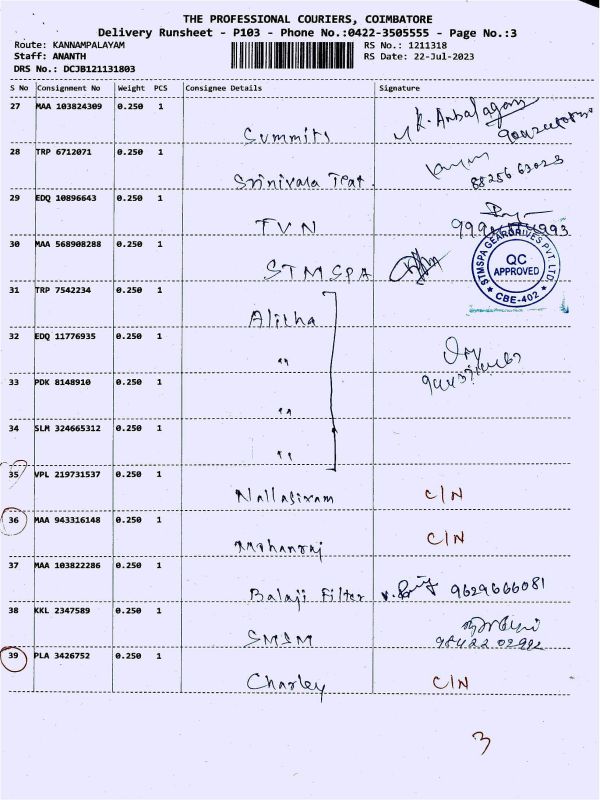 THE PROFESSIONAL COURIERS, COIMBATORE
Delivery Runsheet - P103 - Phone No.:0422-3505555 - Page No.:3
Route: KANNAMPALAYAM RS No.: 1211318
Staff: ANANTH RS Date: 22-Jul-2023
DRS No.: DCJB121131803
S No Consignment No Weight PCS Consignee Details Signature
27 MAA 103824309 0.250 1
Summits K. Anbalagan
28 TRP 6712071 0.250 1
Srinivasa Trat. 88256 63023
29 EDQ 10896643 0.250 1
TVN
30 MAA 568908288 0.250 1
STMSPA
STMSPA GEARDRIVES PVT. LTD.
QC
APPROVED
* CBE-402 *
31 TRP 7542234 0.250 1
Alitha
32 EDQ 11776935 0.250 1
"
33 PDK 8148910 0.250 1
"
34 SLM 324665312 0.250 1
"
35 VPL 219731537 0.250 1
Nallasivam C/N
36 MAA 943316148 0.250 1
Mohanraj C/N
37 MAA 103822286 0.250 1
Balaji Filter 9629666081
38 KKL 2347589 0.250 1
SMSM
98422 02992
39 PLA 3426752 0.250 1
Charley C/N
3